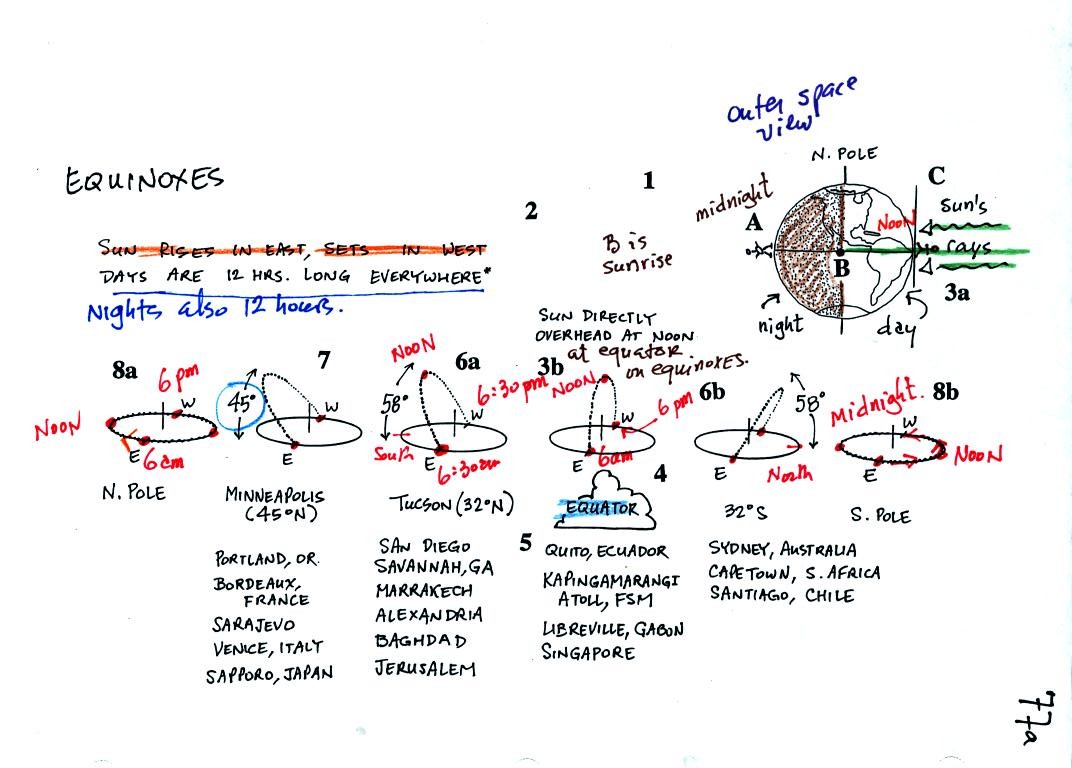 outer space
view
N. POLE
EQUINOXES
1
midnight
C
A
NOON
Sun's
2
B is
sunrise
SUN RISES IN EAST, SETS IN WEST
rays
DAYS ARE 12 HRS. LONG EVERYWHERE*
B
3a
Nights also 12 hours.
night
day
SUN DIRECTLY
OVERHEAD AT NOON
at equator.
on equinoxes.
8a
6pm
NOON
E
6am
N. POLE
7
45°
W
E
MINNEAPOLIS
(45°N)
PORTLAND, OR.
BORDEAUX,
FRANCE
SARAJEVO
VENICE, ITALY
SAPPORO, JAPAN
6a
NOON
58°
W
6:30pm
South
E
6:30am
TUCSON (32°N)
SAN DIEGO
SAVANNAH, GA
MARRAKECH
ALEXANDRIA
BAGHDAD
JERUSALEM
3b
NOON
W
6pm
E
6am
4
EQUATOR
5
QUITO, ECUADOR
KAPINGAMARANGI
ATOLL, FSM
LIBREVILLE, GABON
SINGAPORE
6b
58°
E
North
32°S
SYDNEY, AUSTRALIA
CAPETOWN, S. AFRICA
SANTIAGO, CHILE
8b
Midnight.
W
NOON
E
S. POLE
W
77a